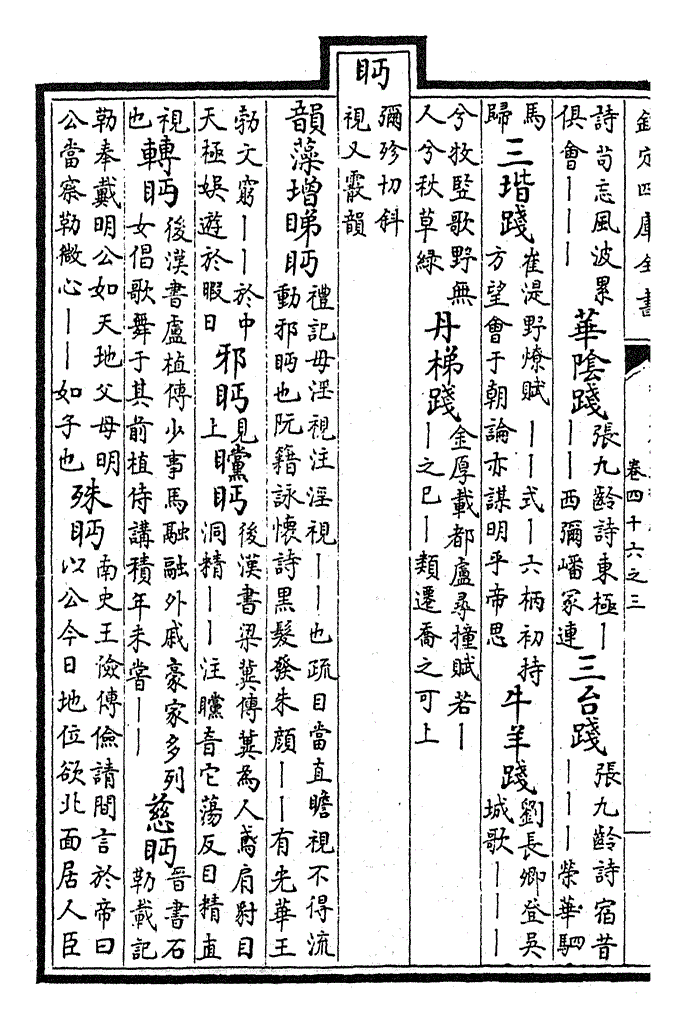 欽定四庫全書 卷四十六之三
詩苟忘風波累俱會——— 華陰踐 張九齡詩東極———西彌嶓冢連 三台踐 張九齡詩宿昔———榮華駟
馬歸 三堦踐 崔湜野燎賦——式—六柄初持方望會于朝論亦謀明乎帝思 牛羊踐 劉長卿登吳城歌———
兮牧豎歌野無人兮秋草綠 丹梯踐 金厚載都盧尋撞賦若——之已—類遷喬之可上
眄 彌殄切斜視又霰韻
韻藻增睇眄 禮記毋淫視注淫視——也疏目當直瞻視不得流動邪眄也阮籍詠懷詩黑髮發朱顏——有光華王
勃文窮——於中天極娛遊於暇日 邪眄 見上 矘眄 後漢書梁冀傳冀為人鳶肩豺目洞精——注矘音它蕩反目精直
視也 轉眄 後漢書盧植傳少事馬融融外戚豪家多列女倡歌舞于其前植侍講積年未嘗—— 慈眄 晉書石勒載記
勒奉戴明公如天地父母明公當察勒微心——如子也 殊眄 南史王儉傳儉請間言於帝曰以公今日地位欲北面居人臣